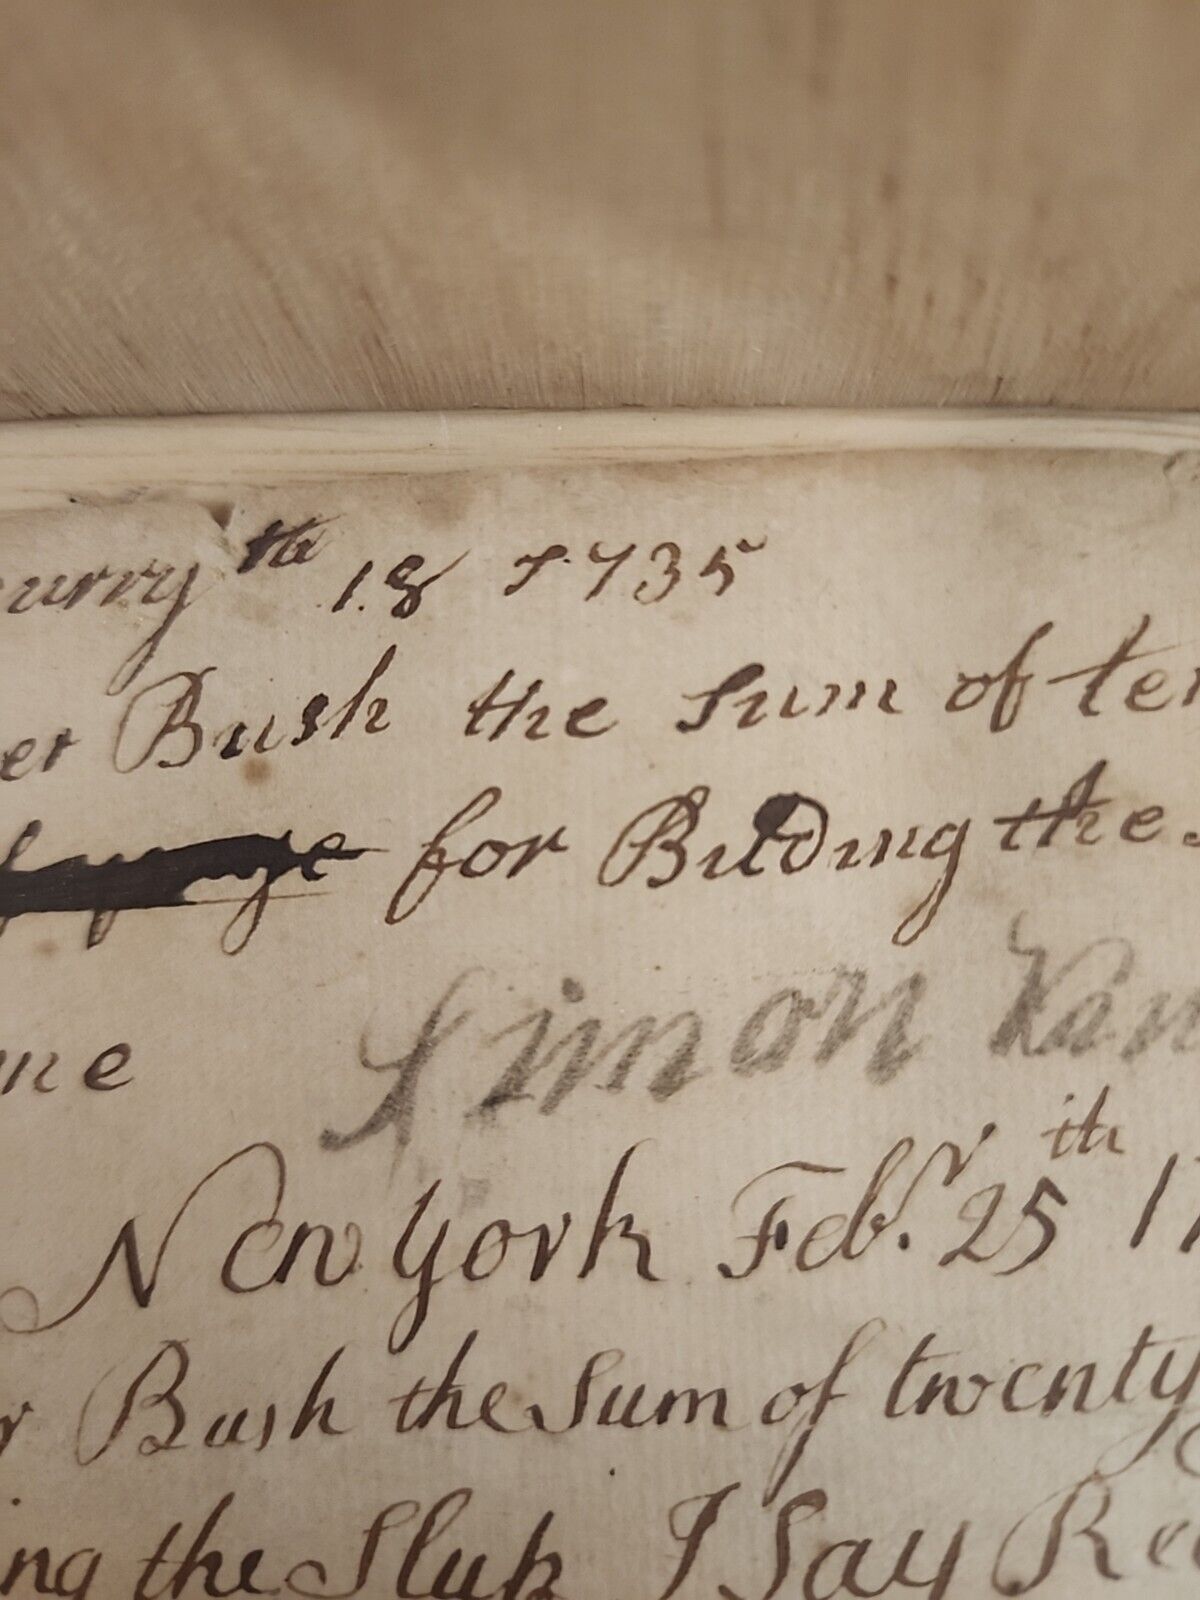 urry th 18 1735
er Bush the Sum of ten
for Bilding the
me Simon Van
New York Feb.r 25th 17
r Bush the Sum of twenty
ing the Slup I Say Re